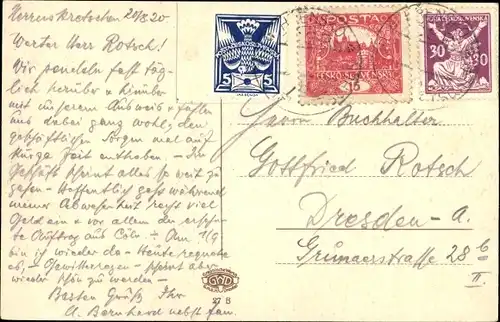 Herrnskretschen 20/8 20
Werter Herr Rotsch!
Wir pendeln fast täg-
lich herüber & hinüber
mit unserem Ausweis & fühlen
uns dabei ganz wohl, den
geschäftlichen Sorgen mal auf
kurze Zeit enthoben - Im
Geschäft scheint alles so weit zu
gehen - Hoffentlich geht während
meiner Abwesenheit recht viel
Geld ein & vor allem der
Auftrag aus Cöln - Am 1/9
bin ich wieder da - Heute regnete
es, - Gewitterregen - scheint aber
wieder schön zu werden -
Besten Gruß Ihr
A. Bernhard nebst Fam.
5 5
POSTA
ČESKO-SLOVENSKÁ
15
POŠTA ČESKOSLOVENSKÁ
30 30
Herrn Buchhalter
Gottfried Rotsch
Dresden-A.
Grunaerstraße 28 b
II.
27 B